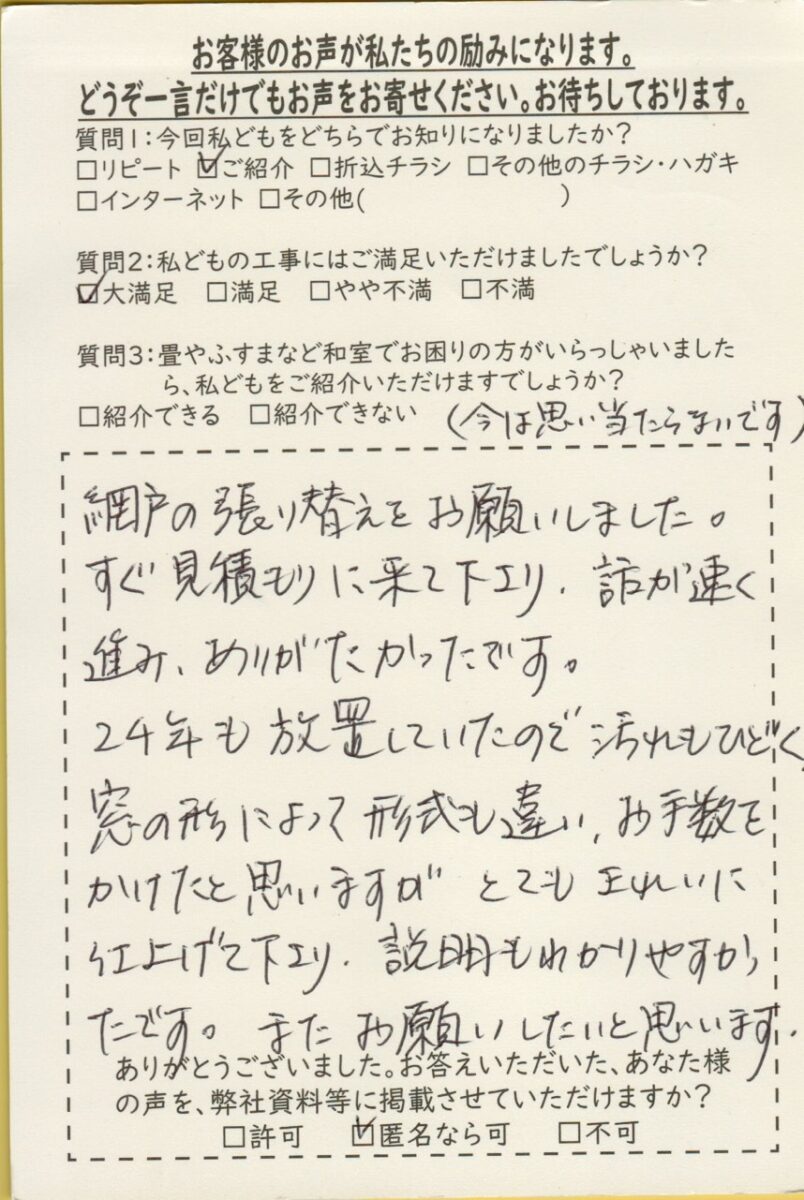 お客様のお声が私たちの励みになります。
どうぞ一言だけでもお声をお寄せください。お待ちしております。
質問1:今回私どもをどちらでお知りになりましたか?
□リピート ☑ご紹介 □折込チラシ □その他のチラシ・ハガキ
□インターネット □その他( )
質問2:私どもの工事にはご満足いただけましたでしょうか?
☑大満足 □満足 □やや不満 □不満
質問3:畳やふすまなど和室でお困りの方がいらっしゃいました
ら、私どもをご紹介いただけますでしょうか?
□紹介できる □紹介できない (今は思い当たらないです)
網戸の張り替えをお願いしました。
すぐ見積もりに来て下さり、話が速く
進み、ありがたかったです。
24年も放置していたので汚れもひどく、
窓の形によって形式も違い、お手数を
かけたと思いますが とてもきれいに
仕上げて下さり、説明もわかりやすかっ
たです。またお願いしたいと思います。
ありがとうございました。お答えいただいた、あなた様
の声を、弊社資料等に掲載させていただけますか?
□許可 ☑匿名なら可 □不可